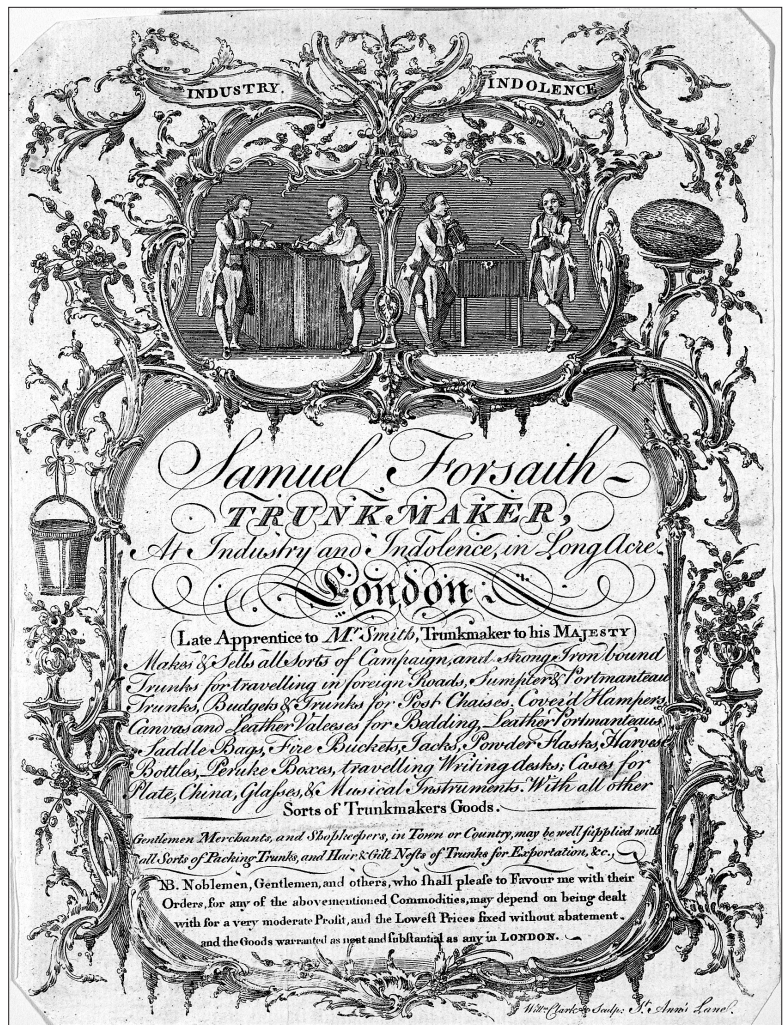 INDUSTRY.
INDOLENCE
Samuel Forsaith
TRUNKMAKER,
At Industry and Indolence, in Long Acre.
London
(Late Apprentice to Mr. Smith, Trunkmaker to his MAJESTY)
Makes & Sells all Sorts of Campaign, and strong Iron bound
Trunks for travelling in foreign Roads, Sumpter & Portmanteau
Trunks, Budgets & Trunks for Post Chaises, Cover'd Hampers,
Canvas and Leather Valeeses for Bedding, Leather Portmanteaus,
Saddle Bags, Fire Buckets, Jacks, Powder Flasks, Harvest
Bottles, Peruke Boxes, travelling Writing desks; Cases for
Plate, China, Glaſses, & Musical Instruments. With all other
Sorts of Trunkmakers Goods.
Gentlemen Merchants, and Shopkeepers, in Town or Country, may be well ſupplied with
all Sorts of Packing Trunks, and Hair & Gilt Neſts of Trunks for Exportation, &c.,
NB. Noblemen, Gentlemen, and others, who ſhall pleaſe to Favour me with their
Orders, for any of the abovementioned Commodities, may depend on being dealt
with for a very moderate Profit, and the Loweſt Prices fixed without abatement.
and the Goods warranted as neat and ſubſtantial as any in LONDON.
Willm. Clark Sculp: St. Ann's Lane.